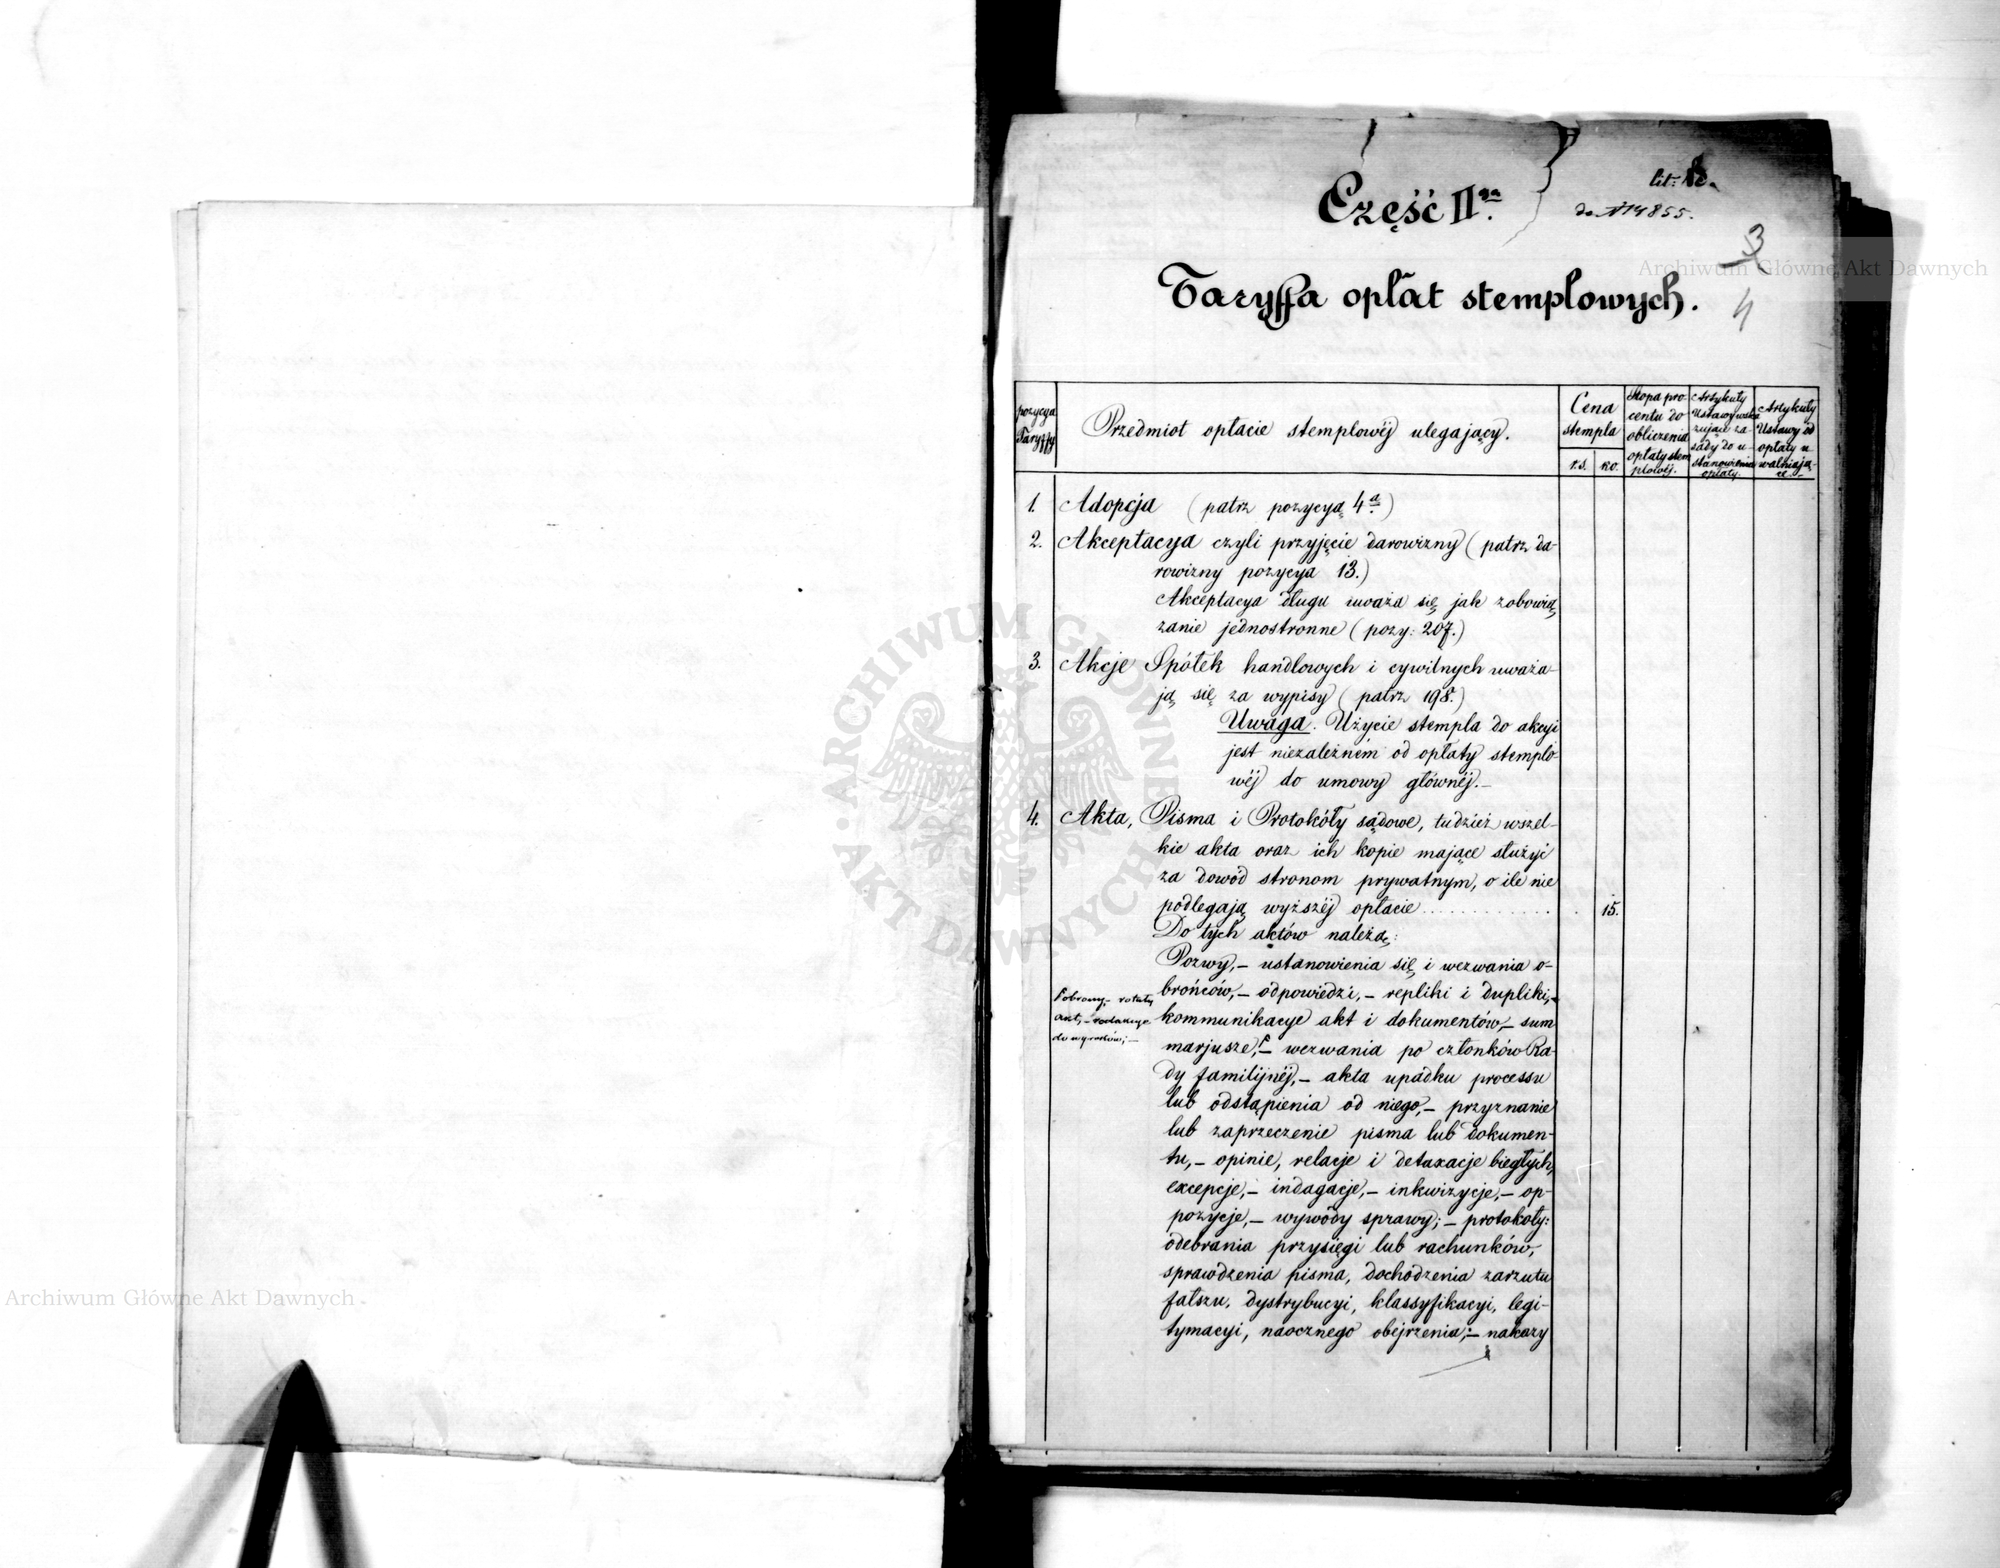 Część II ga.
do N 14855.
3
4
Taryffa opłat stemplowych.
pozycya Taryffy
Przedmiot opłacie stemplowéj ulegający.
Cena stempla
rs. ko.
Stopa procentu do obliczenia opłaty stemplowéj.
Artykuły Ustawy wskazujące zasady do ustanowienia opłaty.
Artykuły Ustawy od opłaty uwalniające.
1. Adopcja (patrz pozycyą 4 a.)
2. Akceptacya czyli przyjęcie darowizny (patrz da-
rowizny pozycya 13.)
Akceptacya długu uważa się jak zobowią
zanie jednostronne (pozy: 207.)
3. Akcje Spółek handlowych i cywilnych uważa-
ją się za wypisy (patrz 198.)
Uwaga. Użycie stempla do akcyi
jest niezależném od opłaty stemplo-
wéj do umowy głównéj.—
4. Akta, Pisma i Protokóły sądowe, tudzież wszel-
kie akta oraz ich kopie mające służyć
za dowód stronom prywatnym, o ile nie
podlegają wyższéj opłacie . . . . . . . . . . . . . 15.
Do tych aktów należą:
Pozwy,— ustanowienia się i wezwania o-
brońców,— odpowiedzi,— repliki i dupliki,—
kommunikacye akt i dokumentów,— sum
marjusze,— wezwania po członków Ra-
dy familijnéj,— akta upadku processu
lub odstąpienia od niego,— przyznanie
lub zaprzeczenie pisma lub dokumen-
tu,— opinie, relacje i detaxacje biegłych,
excepcje,— indagacje,— inkwizycje,— op-
pozycje,— wywody sprawy;— protokoły:
odebrania przysięgi lub rachunków,
sprawdzenia pisma, dochodzenia zarzutu
fałszu, dystrybucyi, klassyfikacyi, legi-
tymacyi, naocznego obejrzenia;— nakazy
akt,— redakcye
do wyroków;—
Archiwum Główne Akt Dawnych
Archiwum Główne Akt Dawnych
ARCHIWUM GŁÓWNE AKT DAWNYCH